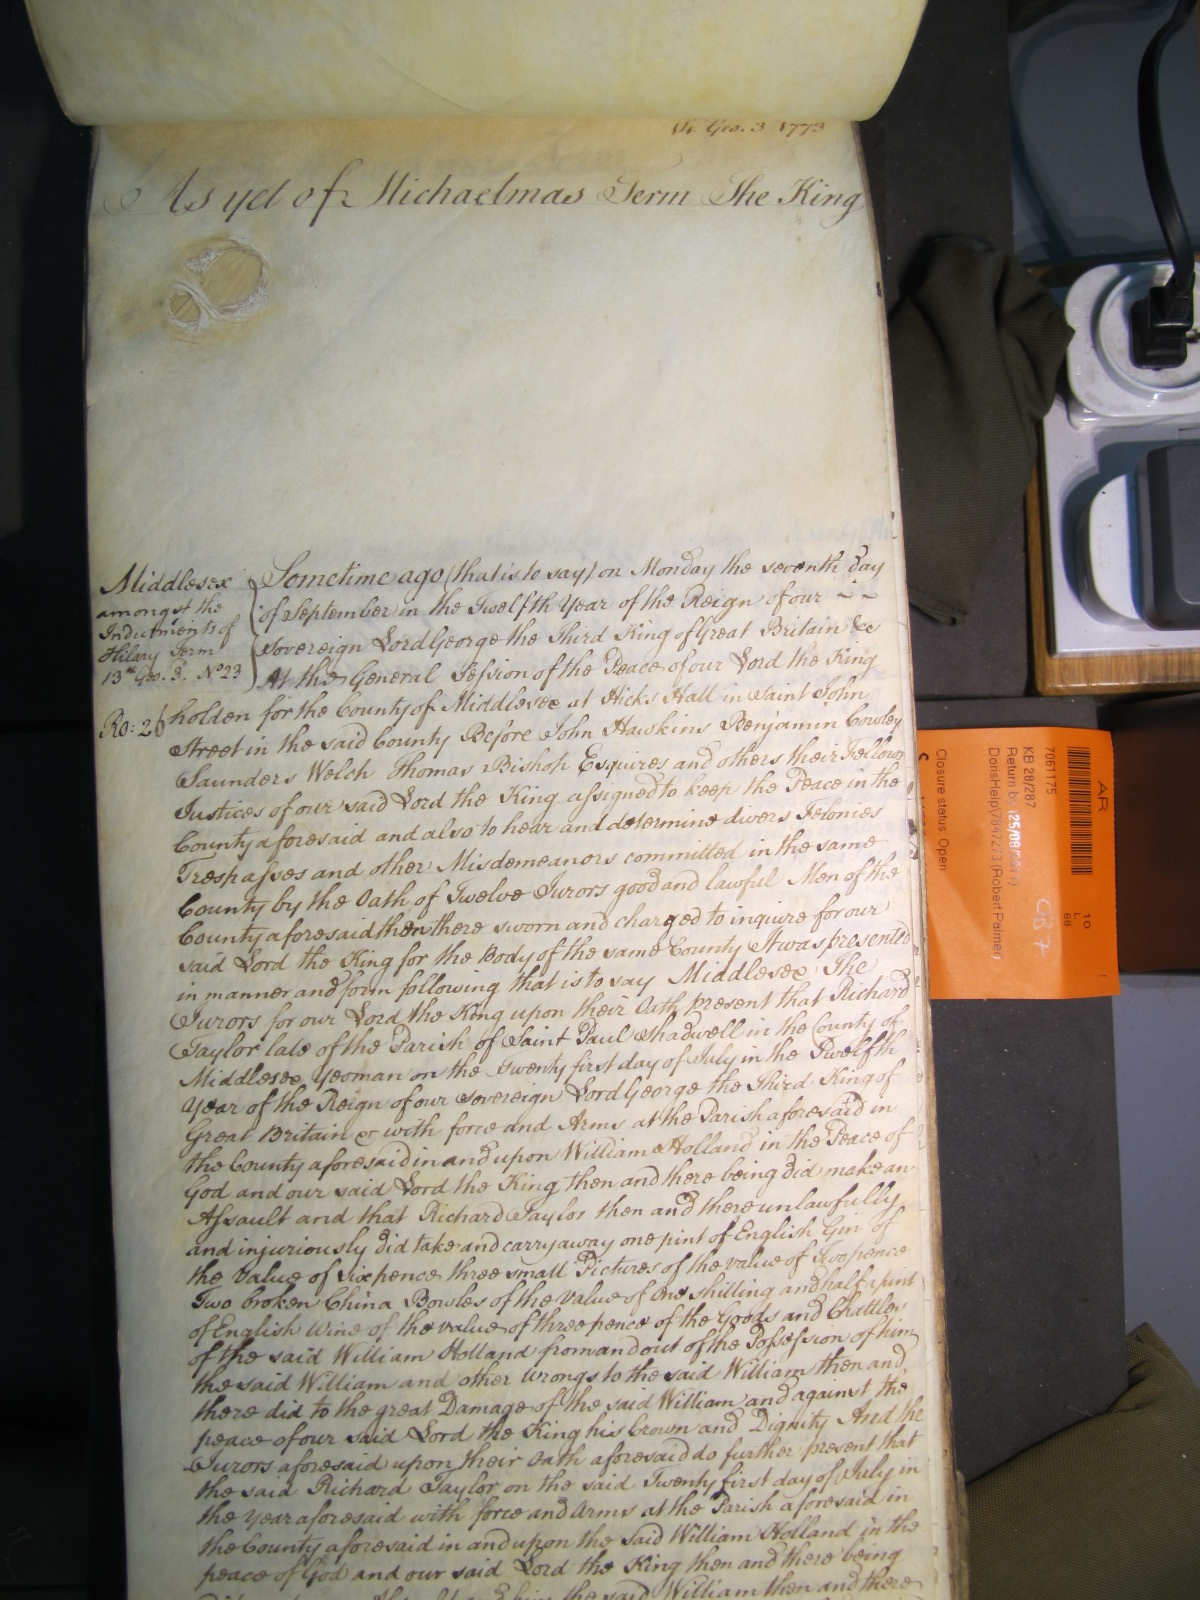 Geo. 3 1773
As yet of Michaelmas Term The King
Middlesex
amongst the
Indictments of
Hilary Term
13th Geo. 3. No 23
Ro: 26
Sometime ago (that is to say) on Monday the seventh day
of September in the Twelfth Year of the Reign of our ~ ~
Sovereign Lord George the Third King of Great Britain &c
At the General Session of the Peace of our Lord the King
holden for the County of Middlesex at Hicks Hall in Saint John
Street in the said County Before John Hawkins Benjamin Cowley
Saunders Welch Thomas Bishop Esquires and others their Fellows
Justices of our said Lord the King assigned to keep the Peace in the
County aforesaid and also to hear and determine divers Felonies
Trespasses and other Misdemeanors committed in the same
County by the Oath of Twelve Jurors good and lawful Men of the
County aforesaid then there sworn and charged to inquire for our
said Lord the King for the Body of the same County It was presented
in manner and form following that is to say Middlesex The
Jurors for our Lord the King upon their Oath present that Richard
Taylor late of the Parish of Saint Paul Shadwell in the County of
Middlesex Yeoman on the Twenty first day of July in the Twelfth
Year of the Reign of our Sovereign Lord George the Third King of
Great Britain &c with force and Arms at the Parish aforesaid in
the County aforesaid in and upon William Holland in the Peace of
God and our said Lord the King then and there being did make an
Assault and that Richard Taylor then and there unlawfully
and injuriously did take and carry away one pint of English Gin of
the Value of sixpence three small Pictures of the value of Twopence
Two broken China Bowles of the value of One shilling and half a pint
of English Wine of the value of three pence of the Goods and Chattles
of the said William Holland from and out of the Possession of him
the said William and other Wrongs to the said William then and
there did to the great Damage of the said William and against the
peace of our said Lord the King his Crown and Dignity And the
Jurors aforesaid upon their Oath aforesaid do further present that
the said Richard Taylor on the said Twenty first day of July in
the Year aforesaid with force and Arms at the Parish aforesaid in
the County aforesaid in and upon the said William Holland in the
peace of God and our said Lord the King then and there being
the said William then and there
AR
10
L
68
7061175
KB 28/287
Return by
Robert Palmer
Closure status: Open